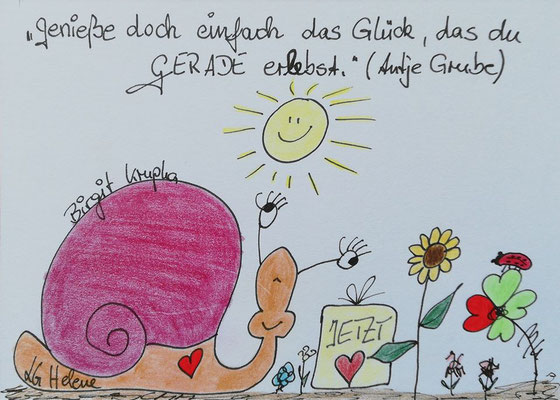 „Genieße doch einfach das Glück, das du
GERADE erlebst." (Antje Grube)
Birgit Krupka
JETZT
LG Helene